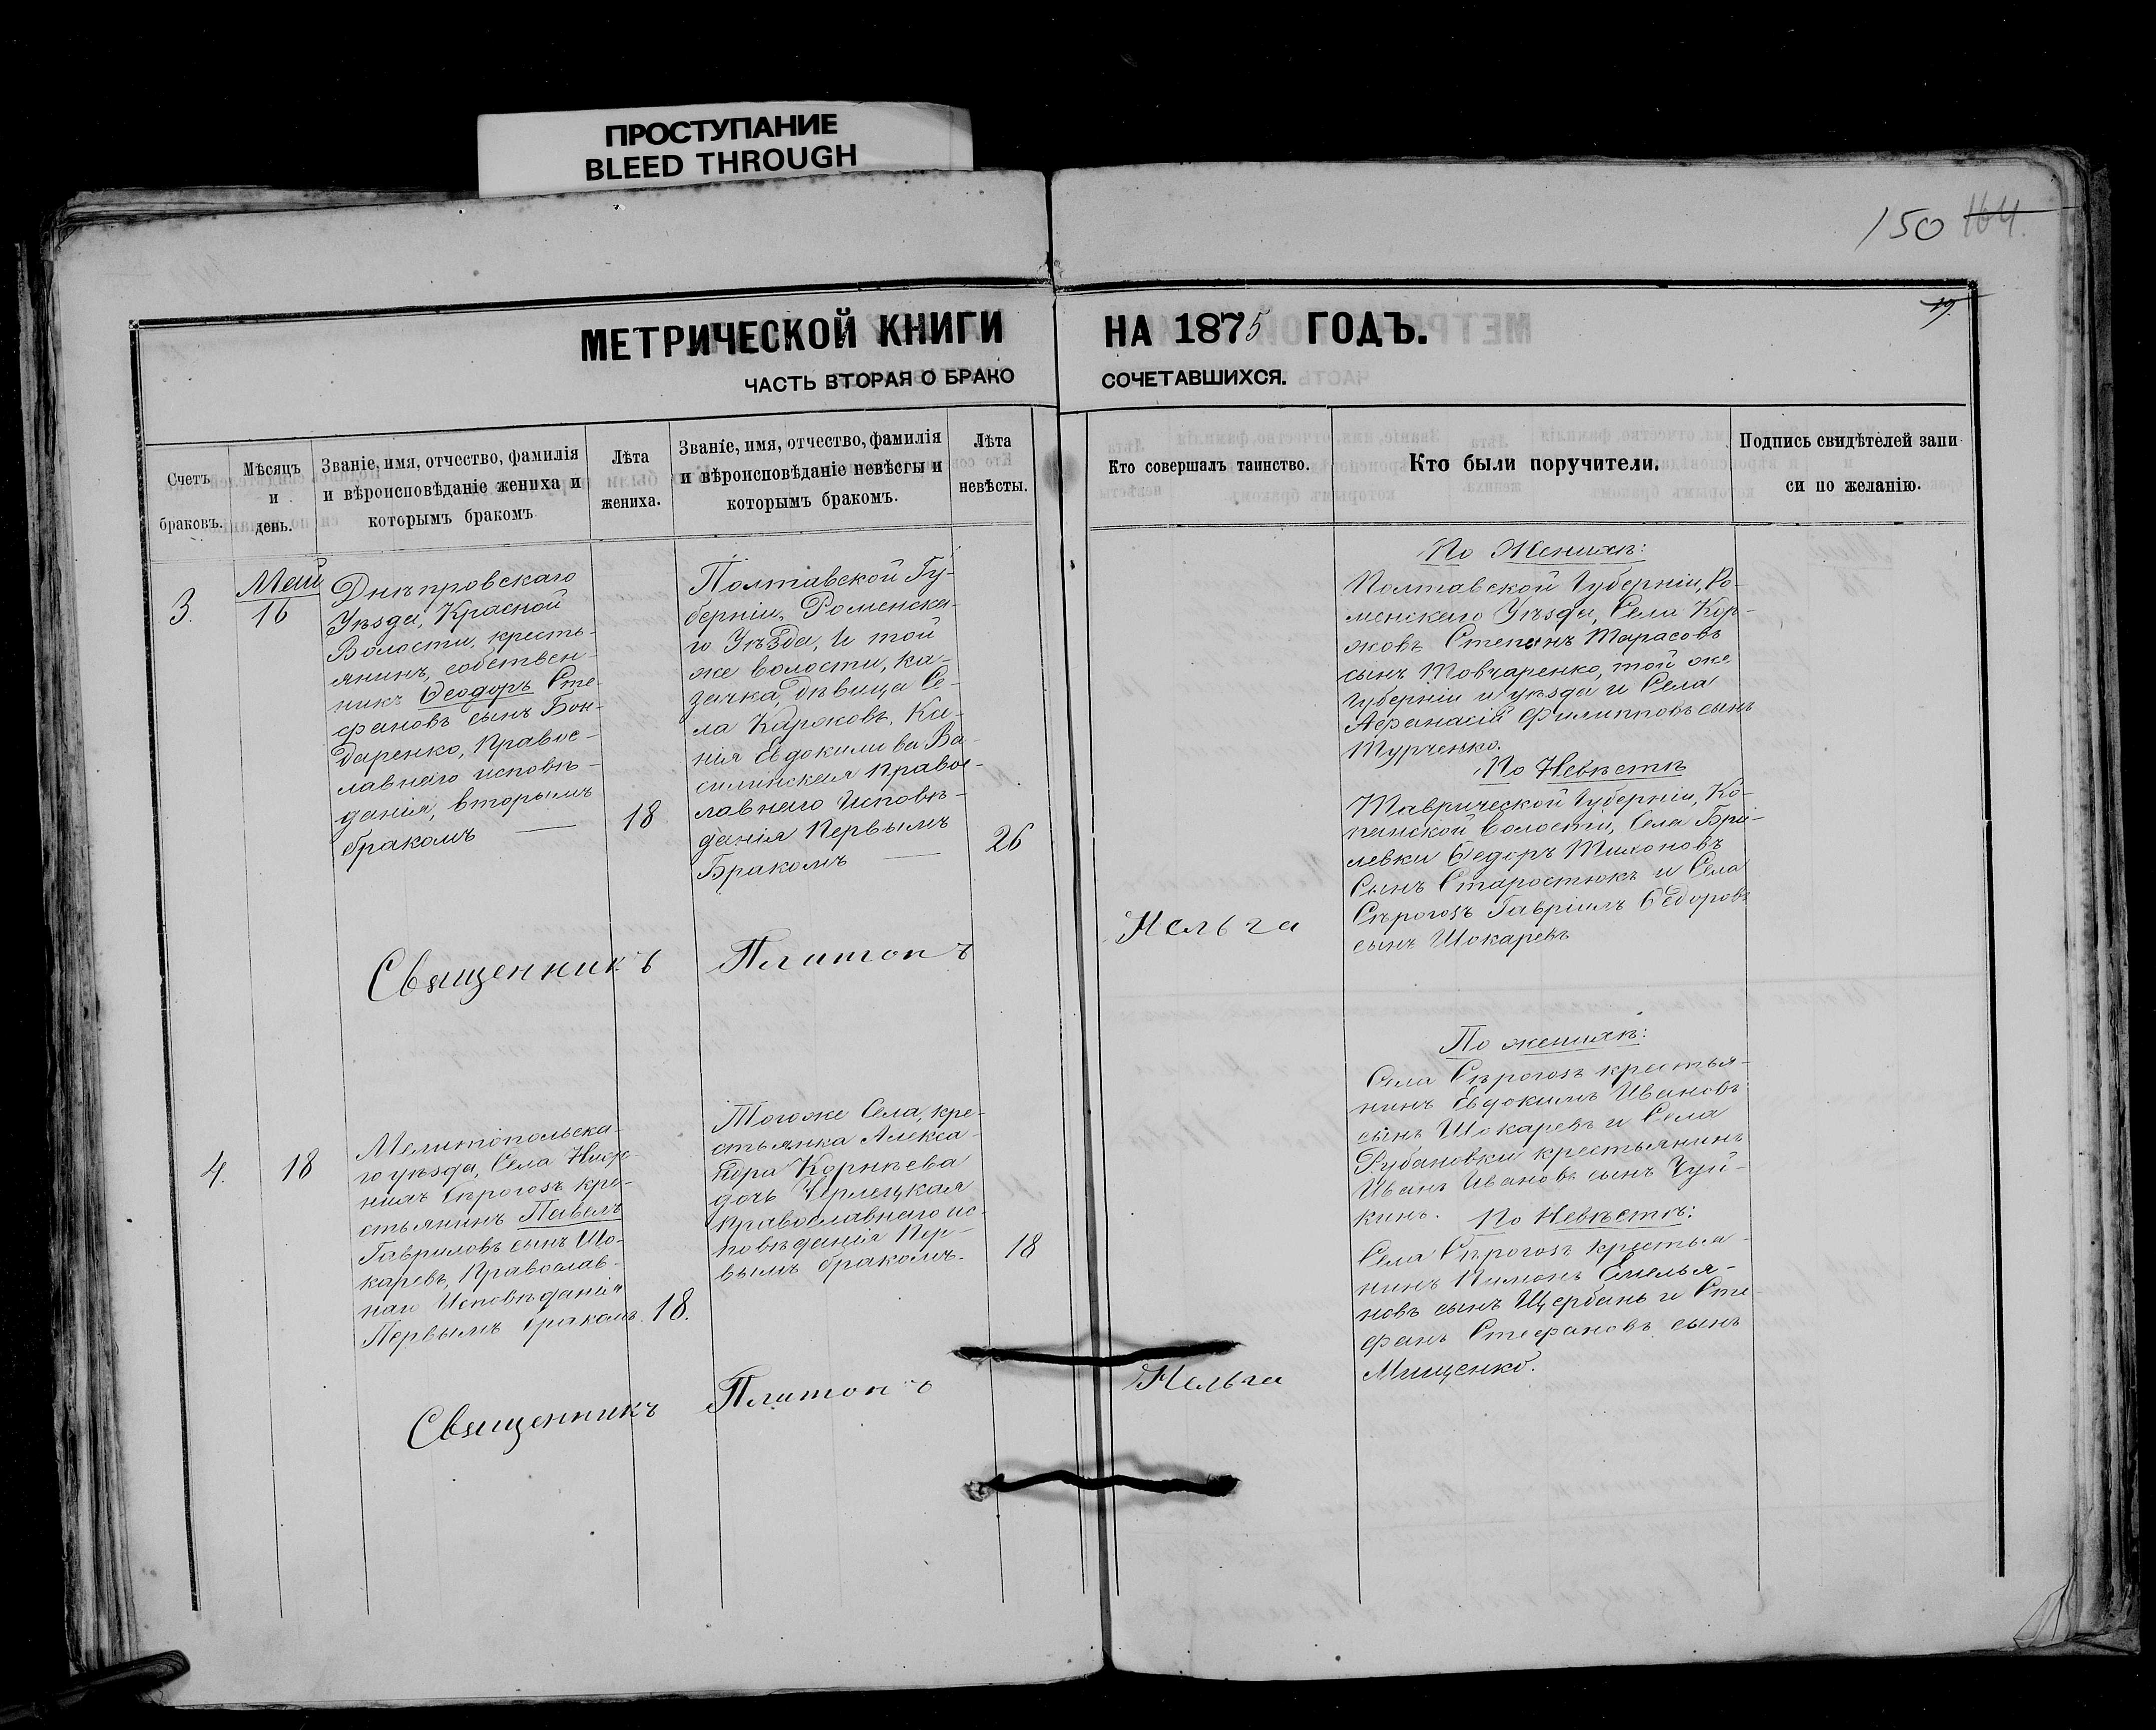 ПРОСТУПАНИЕ
BLEED THROUGH
150 164.
19
МЕТРИЧЕСКОЙ КНИГИ
НА 1875 ГОДЪ.
ЧАСТЬ ВТОРАЯ О БРАКО
СОЧЕТАВШИХСЯ.
Счетъ
браковъ.
Мѣсяцъ
и
день.
Званіе, имя, отчество, фамилія
и вѣроисповѣданіе жениха и
которымъ бракомъ
Лѣта
жениха.
Званіе, имя, отчество, фамилія
и вѣроисповѣданіе невѣсты и
которымъ бракомъ.
Лѣта
невѣсты.
Кто совершалъ таинство.
Кто были поручители.
Подпись свидѣтелей запи
си по желанію.
3.
Маій
16
Днѣпровскаго
Уѣзда, Красной
Волости, кресть-
янинъ, собствен-
никъ Ѳеодоръ Сте-
фановъ сынъ Бон-
даренко, Правос-
лавнаго исповѣ-
данія, вторымъ
бракомъ
18
Полтавской Гу-
берніи, Роменска-
го Уѣзда, и той
же волости, ка-
зачка, дѣвица Се-
ла Каржовъ,
Евдокимова Ва-
силинская Правос-
лавнаго Исповѣ-
данія Первымъ
Бракомъ
26
По Женихѣ:
Полтавской Губерніи, Ро-
менскаго Уѣзда, Села Кор-
жовъ Степанъ Тарасовъ
сынъ Товчаренко, той же
Губерніи и уѣзда и Села
Афанасій Филипповъ сынъ
Турченко.
По Невѣстѣ
Таврической Губерніи, Ко-
панской Волости, Села Бри-
левки Ѳедоръ Тихоновъ
Сынъ Старостюкъ и Села
Сѣрогозъ Гавріилъ Ѳедоровъ
сынъ Шокаревъ
Священникъ Платонъ
Нельга
4.
18
Мелитопольска-
го уѣзда, Села Ниж-
нихъ Сѣрогозъ кре-
стьянинъ Павелъ
Гавриловъ сынъ Шо-
каревъ, Православ-
наго Исповѣданія
Первымъ бракомъ.
18.
Тогоже Села, кре-
стьянка Алекса-
ндра Корнѣева
дочь Чрлецкая
Православнаго ис-
повѣданія Пер-
вымъ бракомъ.
18
По женихѣ:
Села Сѣрогозъ крестья-
нинъ Евдокимъ Ивановъ
сынъ Шокаревъ и Села
Рубановки крестьянинъ
Иванъ Ивановъ сынъ Чуй-
кинъ. По Невѣстѣ:
Села Сѣрогозъ крестья-
нинъ Пимонъ Емелья-
новъ сынъ Щербань и Сте-
фанъ Стефановъ сынъ
Мищенко.
Священникъ Платонъ
Нельга